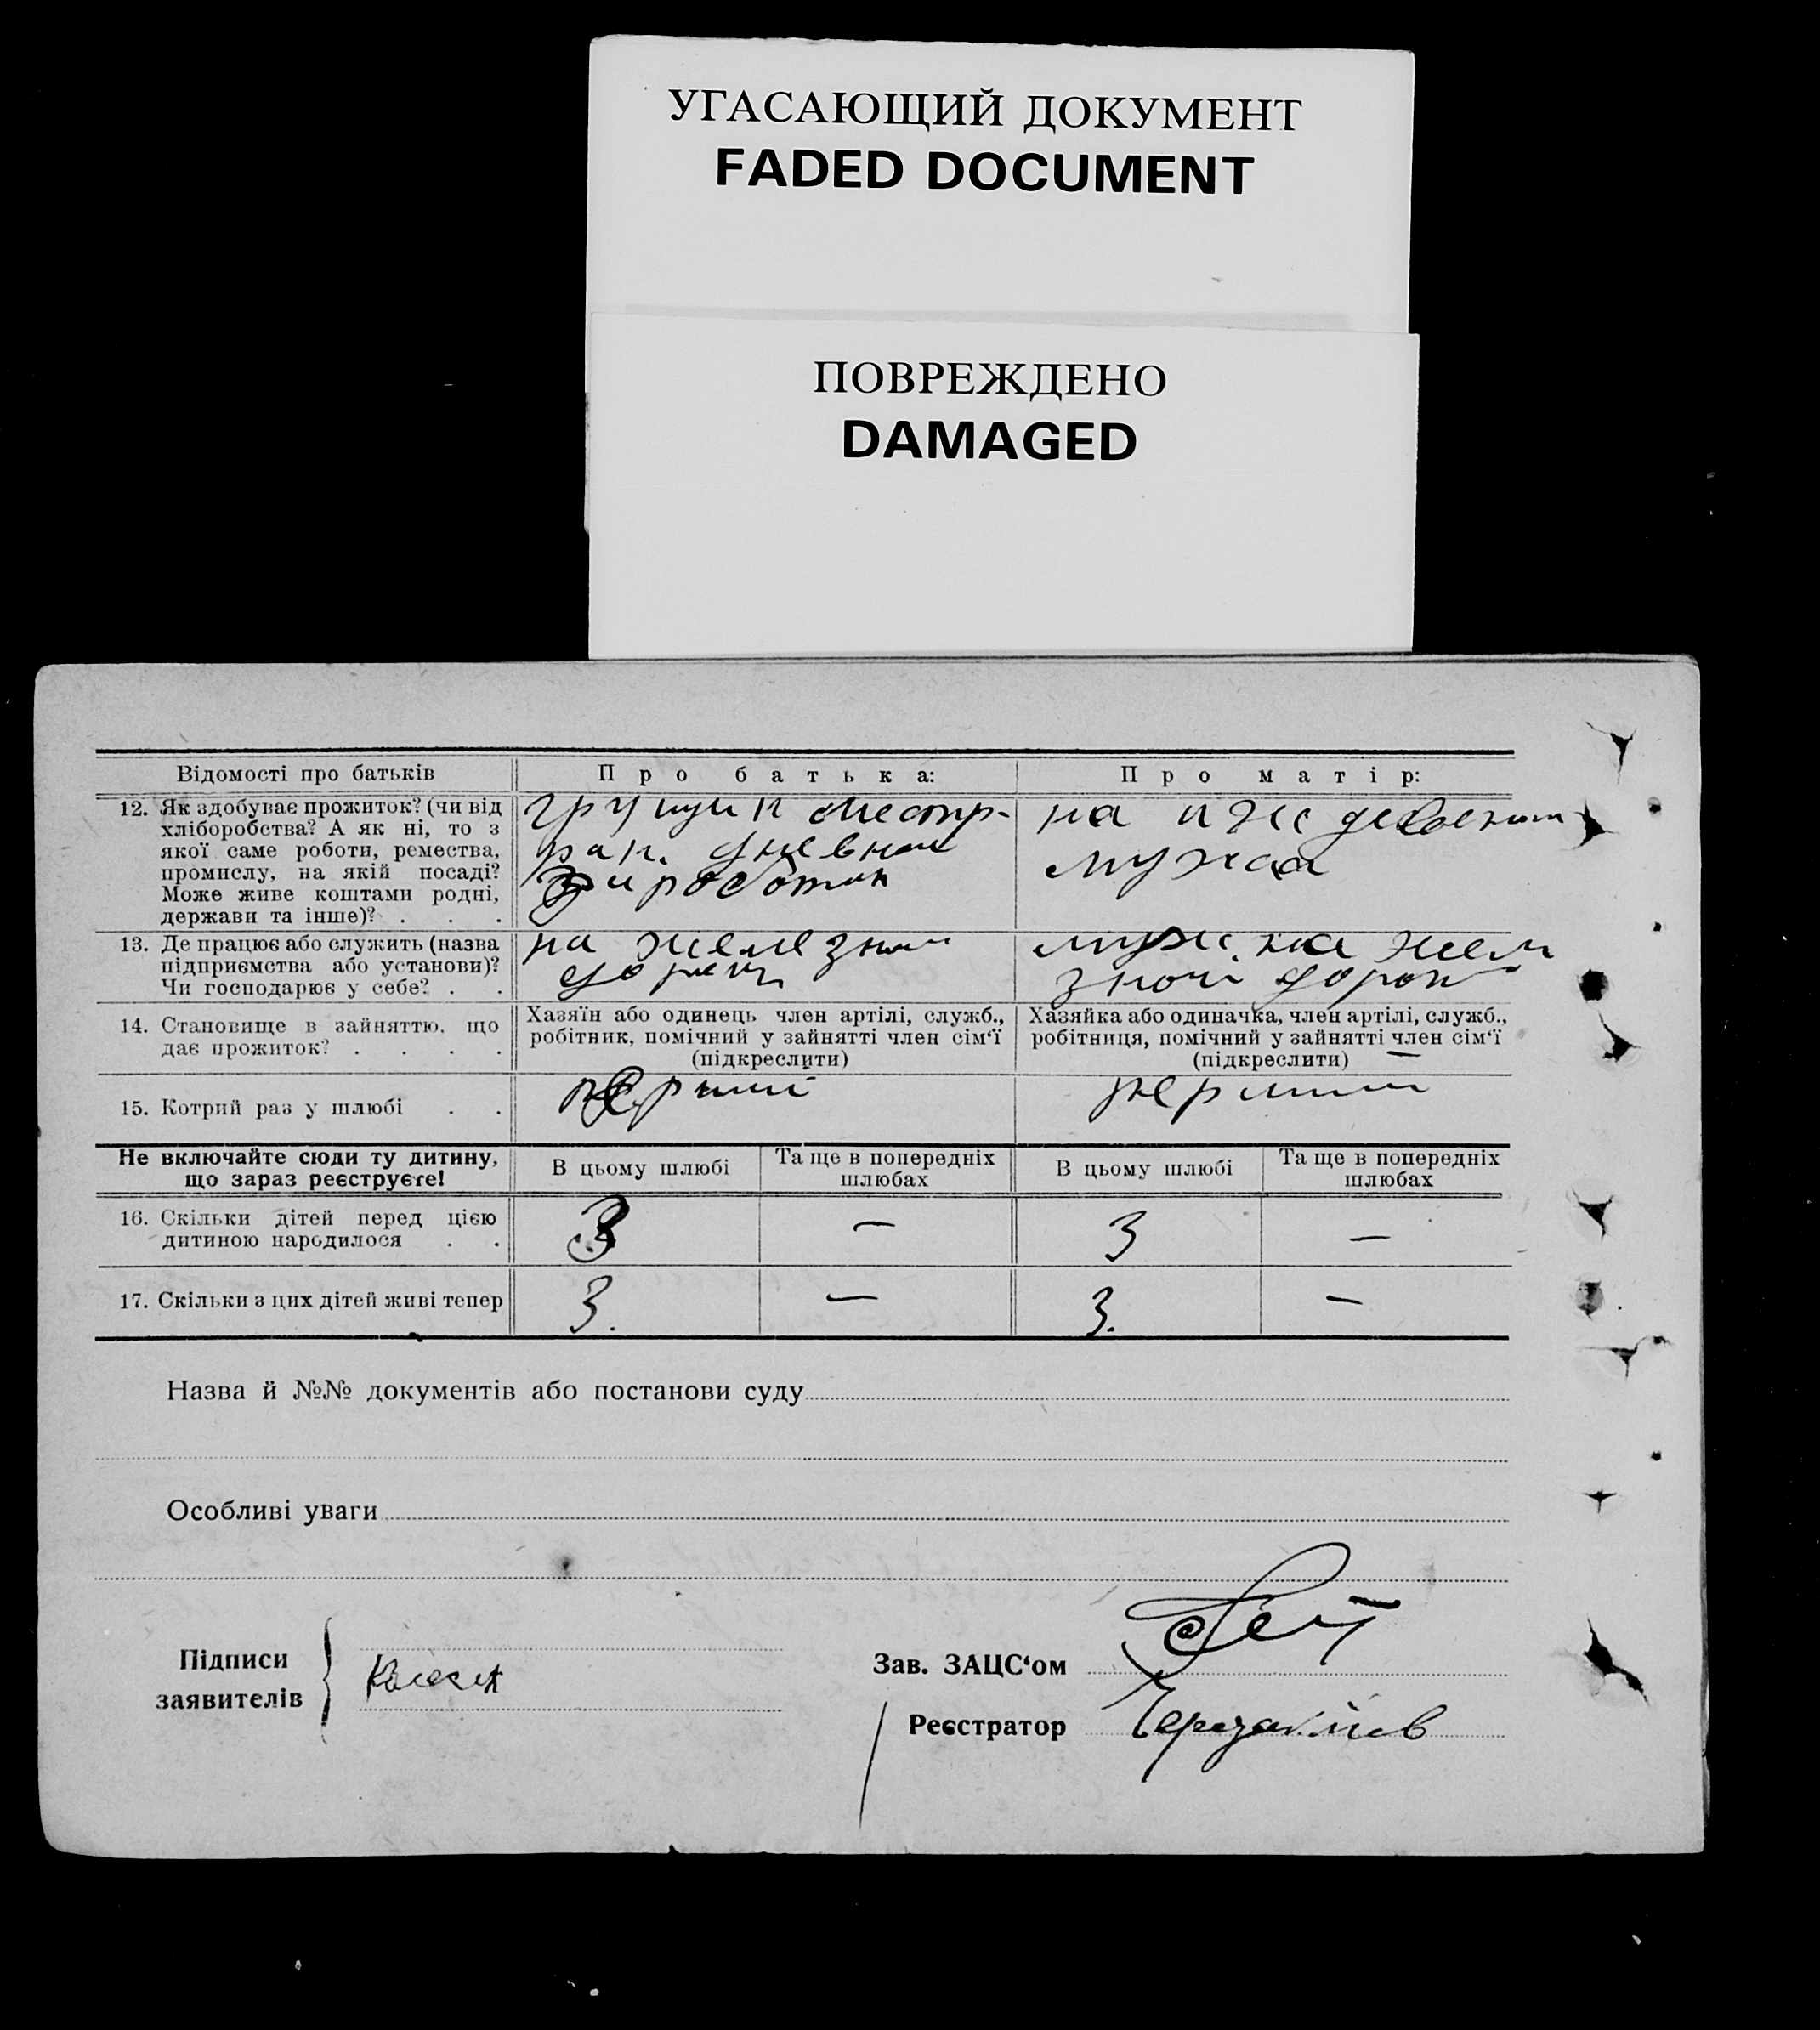 УГАСАЮЩИЙ ДОКУМЕНТ
FADED DOCUMENT
ПОВРЕЖДЕНО
DAMAGED
Відомості про батьків
Про батька:
Про матір:
12. Як здобуває прожиток? (чи від
хліборобства? А як ні, то з
якої саме роботи, ремества,
промислу, на якій посаді?
Може живе коштами родні,
держави та інше)? . . .
заработок
на иждевении
мужа
13. Де працює або служить (назва
підприємства або установи)?
Чи господарює у себе? . .
на железной
дороги
муж на желе
зной дорог
14. Становище в зайняттю, що
дає прожиток? . . . .
Хазяїн або одинець член артілі, служб.,
робітник, помічний у зайнятті член сім‘ї
(підкреслити)
Хазяйка або одиначка, член артілі, служб.,
робітниця, помічний у зайнятті член сім‘ї
(підкреслити) —
15. Котрий раз у шлюбі . .
первий
первий
Не включайте сюди ту дитину,
що зараз реєструєте!
В цьому шлюбі
Та ще в попередніх
шлюбах
В цьому шлюбі
Та ще в попередніх
шлюбах
16. Скільки дітей перед цією
дитиною народилося . .
3
—
3
—
17. Скільки з цих дітей живі тепер
3.
—
3.
—
Назва й №№ документів або постанови суду
Особливі уваги
Підписи
заявителів
Зав. ЗАЦС‘ом
Реєстратор